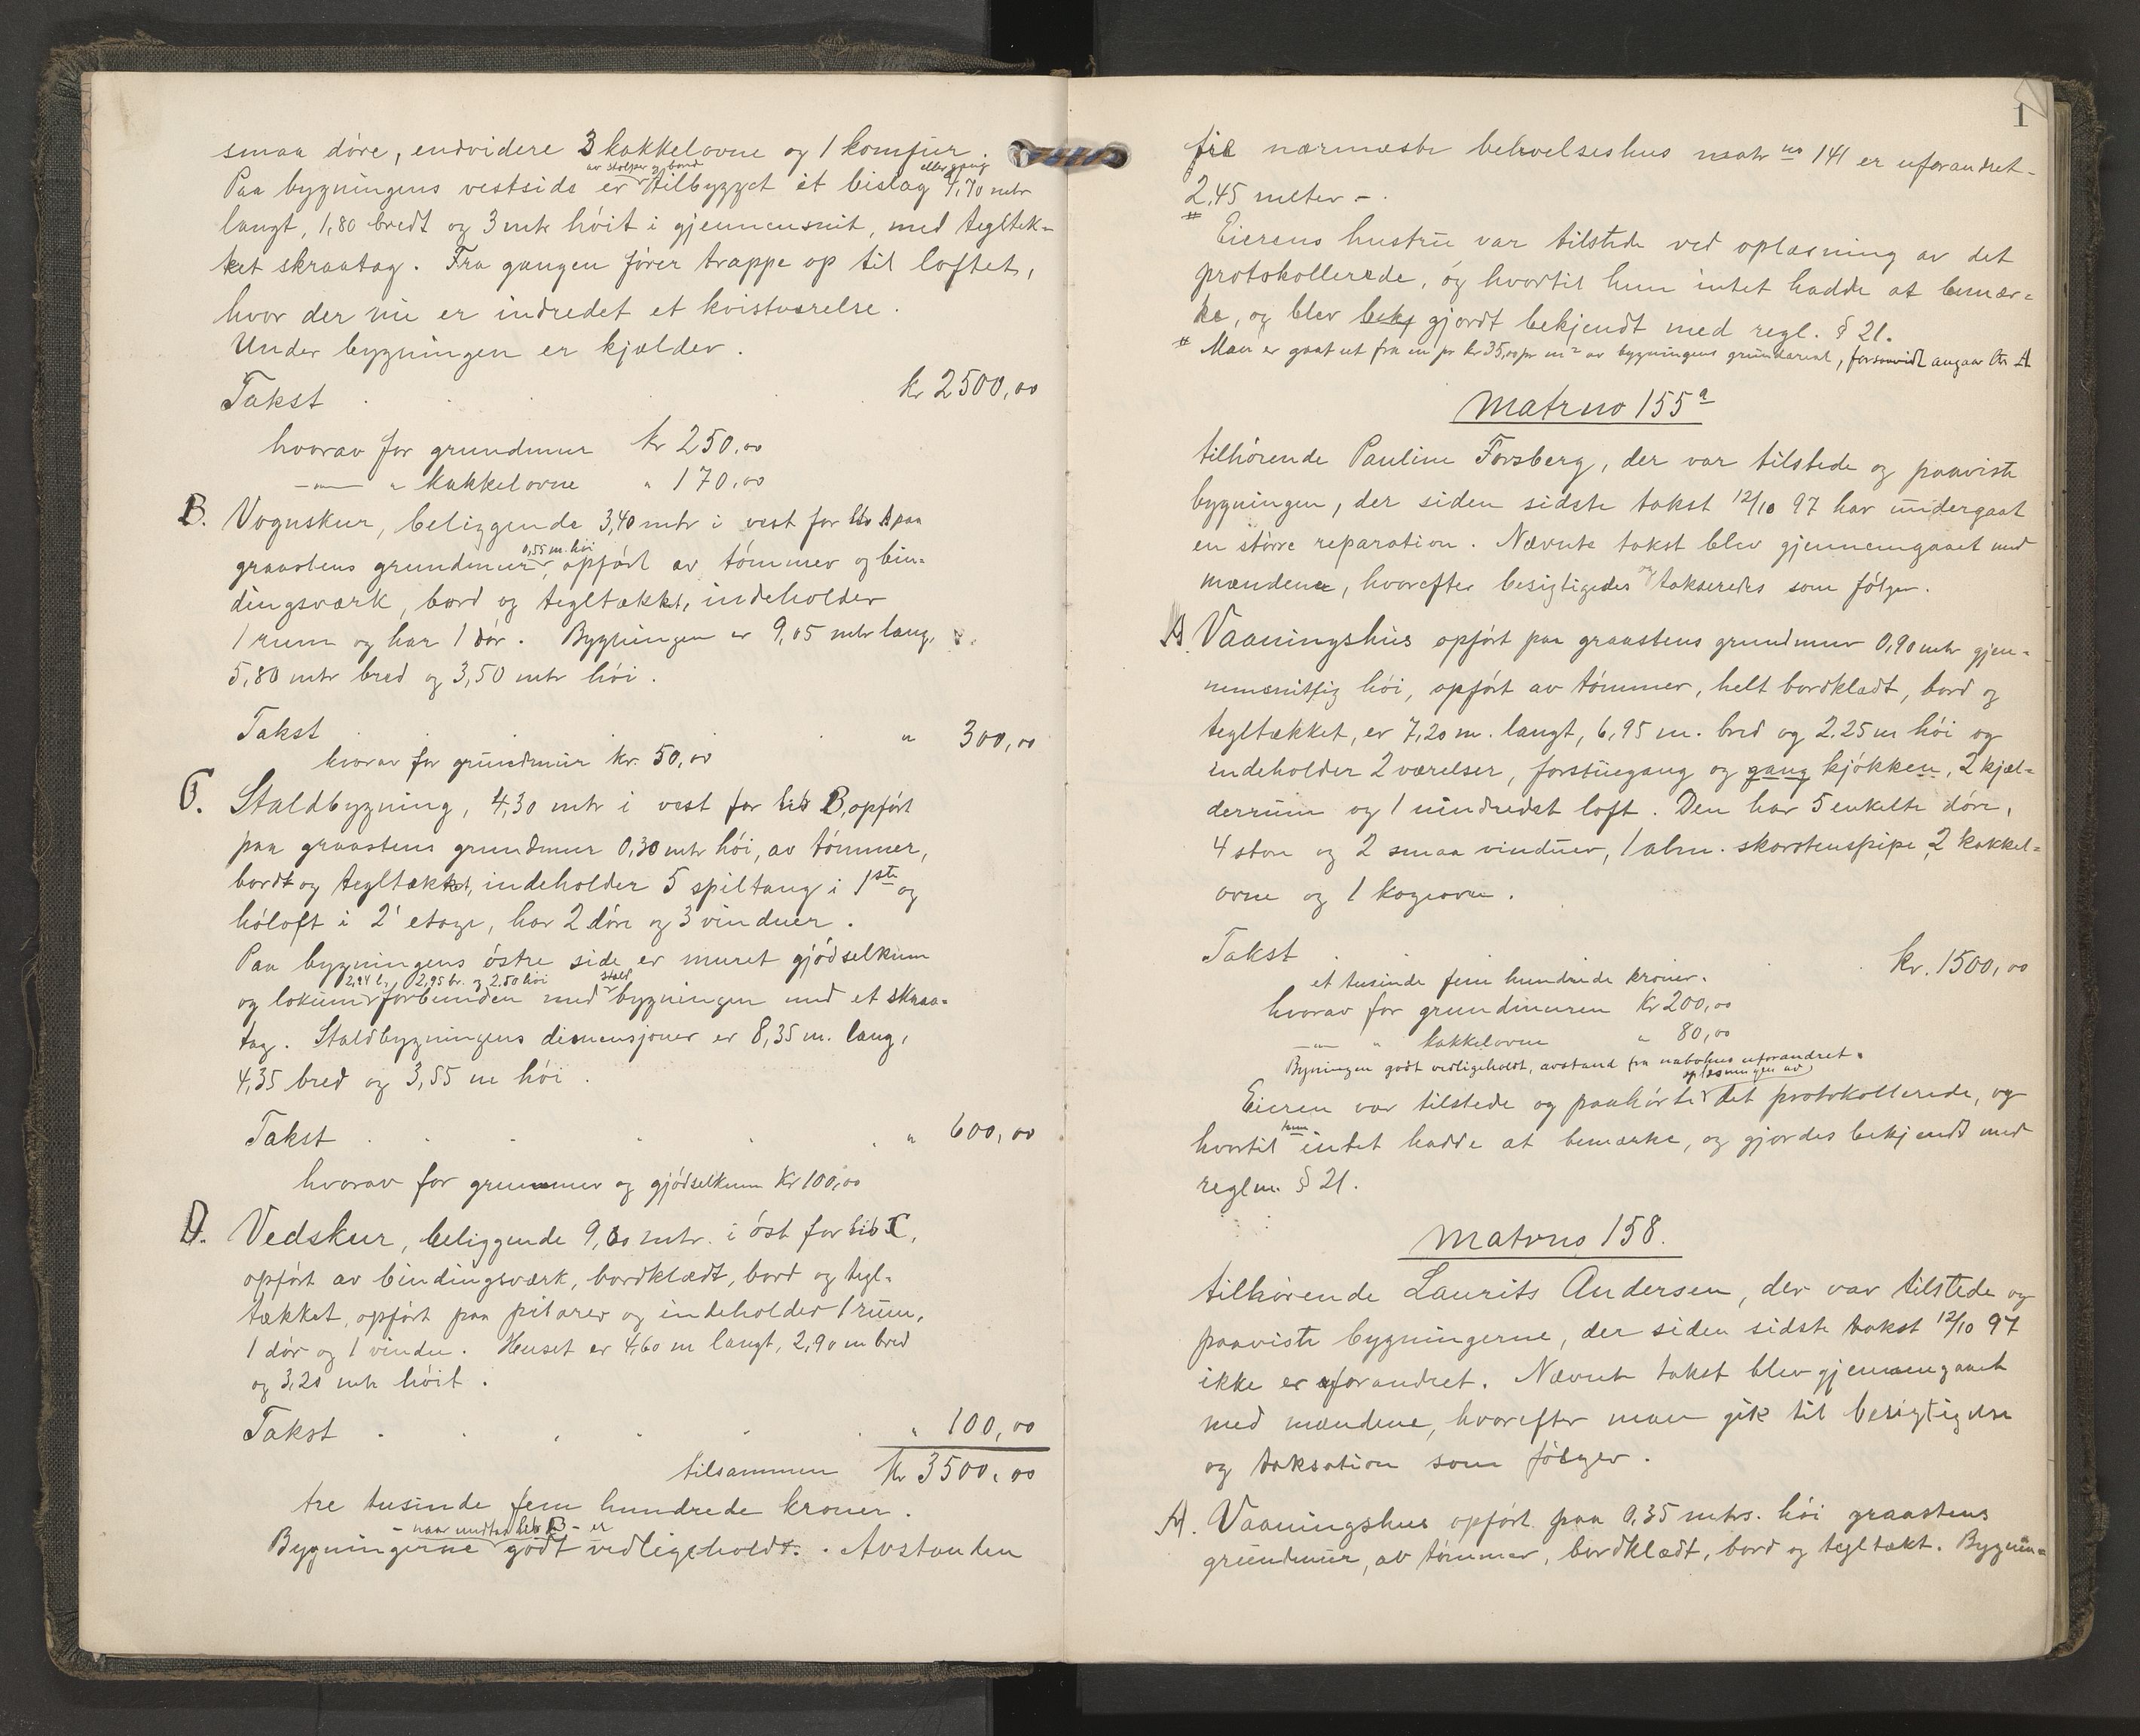 smaa døre, endvidere 3 kakkelovne og 1 komfur.
av stolper og bord
eller gang
Paa bygningens vestside er tilbygget et bislag 4,70 mtr
langt, 1,80 bredt og 3 mtr høit i gjennemsnit, med tegltæk-
ket skraatag. Fra gangen fører trappe op til loftet,
hvor der nu er indredet et kvistværelse.
Under bygningen er kjælder.
Takst . . . kr 2500,00
hvorav for grundmur kr 250,00
—"— " kakkelovne " 170,00
B. Vognskur, beliggende 3,40 mtr i vest for litr A paa
0,55 m. høi
graastens grundmur, opført av tømmer og bin-
dingsværk, bord og tegltækket, indeholder
1 rum og har 1 dør. Bygningen er 9,05 mtr lang,
5,80 mtr bred og 3,50 mtr høi.
Takst . . . " 300,00
hvorav for grundmur kr. 50,00
C. Staldbygning, 4,30 mtr i vest for litr B, opført
paa graastens grundmur 0,30 mtr høi, av tømmer,
bord og tegltækket, indeholder 5 spiltaug i 1ste og
høloft i 2' etage, har 2 døre og 3 vinduer.
Paa bygningens østre side er muret gjødselkum
2,94 l., 2,95 br. og 2.50 høi
stald
og lokum forbunden med bygningen med et skraa-
tag. Staldbygningens dimensjoner er 8,35 m. lang,
4,35 bred og 3,55 m høi.
Takst . . . " 600,00
hvorav for grunmur og gjødselkum Kr 100,00
D. Vedskur, beliggende 9,60 mtr. i øst for litr C,
opført av bindingsværk, bordklædt, bord og tegl-
tækket, opført paa pilarer og indeholder 1 rum,
1 dør og 1 vindu. Huset er 4,60 m langt, 2,90 m bred
og 3,20 mtr høit.
Takst . . . " 100,00
tilsammen Kr 3500,00
tre tusinde fem hundrede kroner.
- naar undtas litr B - er
Bygningerne godt vedligeholdt. Avstanden
1
fra nærmeste beboelseshus matr no 141 er uforandret -
2,45 meter -.
#
Eierens hustru var tilstede ved oplæsning av det
protokollerede, og hvortil hun intet hadde at bemær-
ke, og blev bekj gjordt bekjendt med regl. § 21.
# Man er gaat ut fra en pr kr 35,00 pr m² av bygningens grundareal, forsaavidt angaar litr A
Matrno 155a
tilhørende Pauline Forsberg, der var tilstede og paaviste
bygningen, der siden sidste takst 12/10 97 har undergaat
en større reparation. Nævnte takst blev gjennemgaaet med
mændene, hvorefter besigtigedes og takseredes som følger.
A. Vaaningshus opført paa graastens grundmur 0,90 mtr gjen-
nemsnitlig høi, opført av tømmer, helt bordklædt, bord og
tegltækket, er 7,20 m. langt, 6,95 m. bred og 2.25 m høi og
indeholder 2 værelser, forstuegang og gang kjøkken, 2 kjæl-
derrum og 1 uindredet loft. Den har 5 enkelte døre,
4 store og 2 smaa vinduer, 1 alm. skorstenspipe, 2 kakkel-
ovne og 1 kogeovn.
Takst . . . kr. 1500,00
et tusinde fem hundrede kroner.
hvorav for grundmuren Kr 200,00
—"— " kakkelovne " 80,00
Bygningen godt vedligeholdt, avstand fra nabohus uforandret.
oplæsningen av
Eieren var tilstede og paahørte det protokollerede, og
hvortil hun intet hadde at bemærke, og gjordes bekjendt med
reglm. § 21.
Matrno 158.
tilhørende Laurits Andersen, der var tilstede og
paaviste bygningerne, der siden sidste takst 12/10 97
ikke er forandret. Nævnte takst blev gjennemgaaet
med mændene, hvorefter man gik til besigtigelse
og taksation som følger.
A. Vaaningshus opført paa 0,35 mtrs. høi graastens
grundmur, av tømmer, bordklædt, bord og tegltækt. Bygnin-